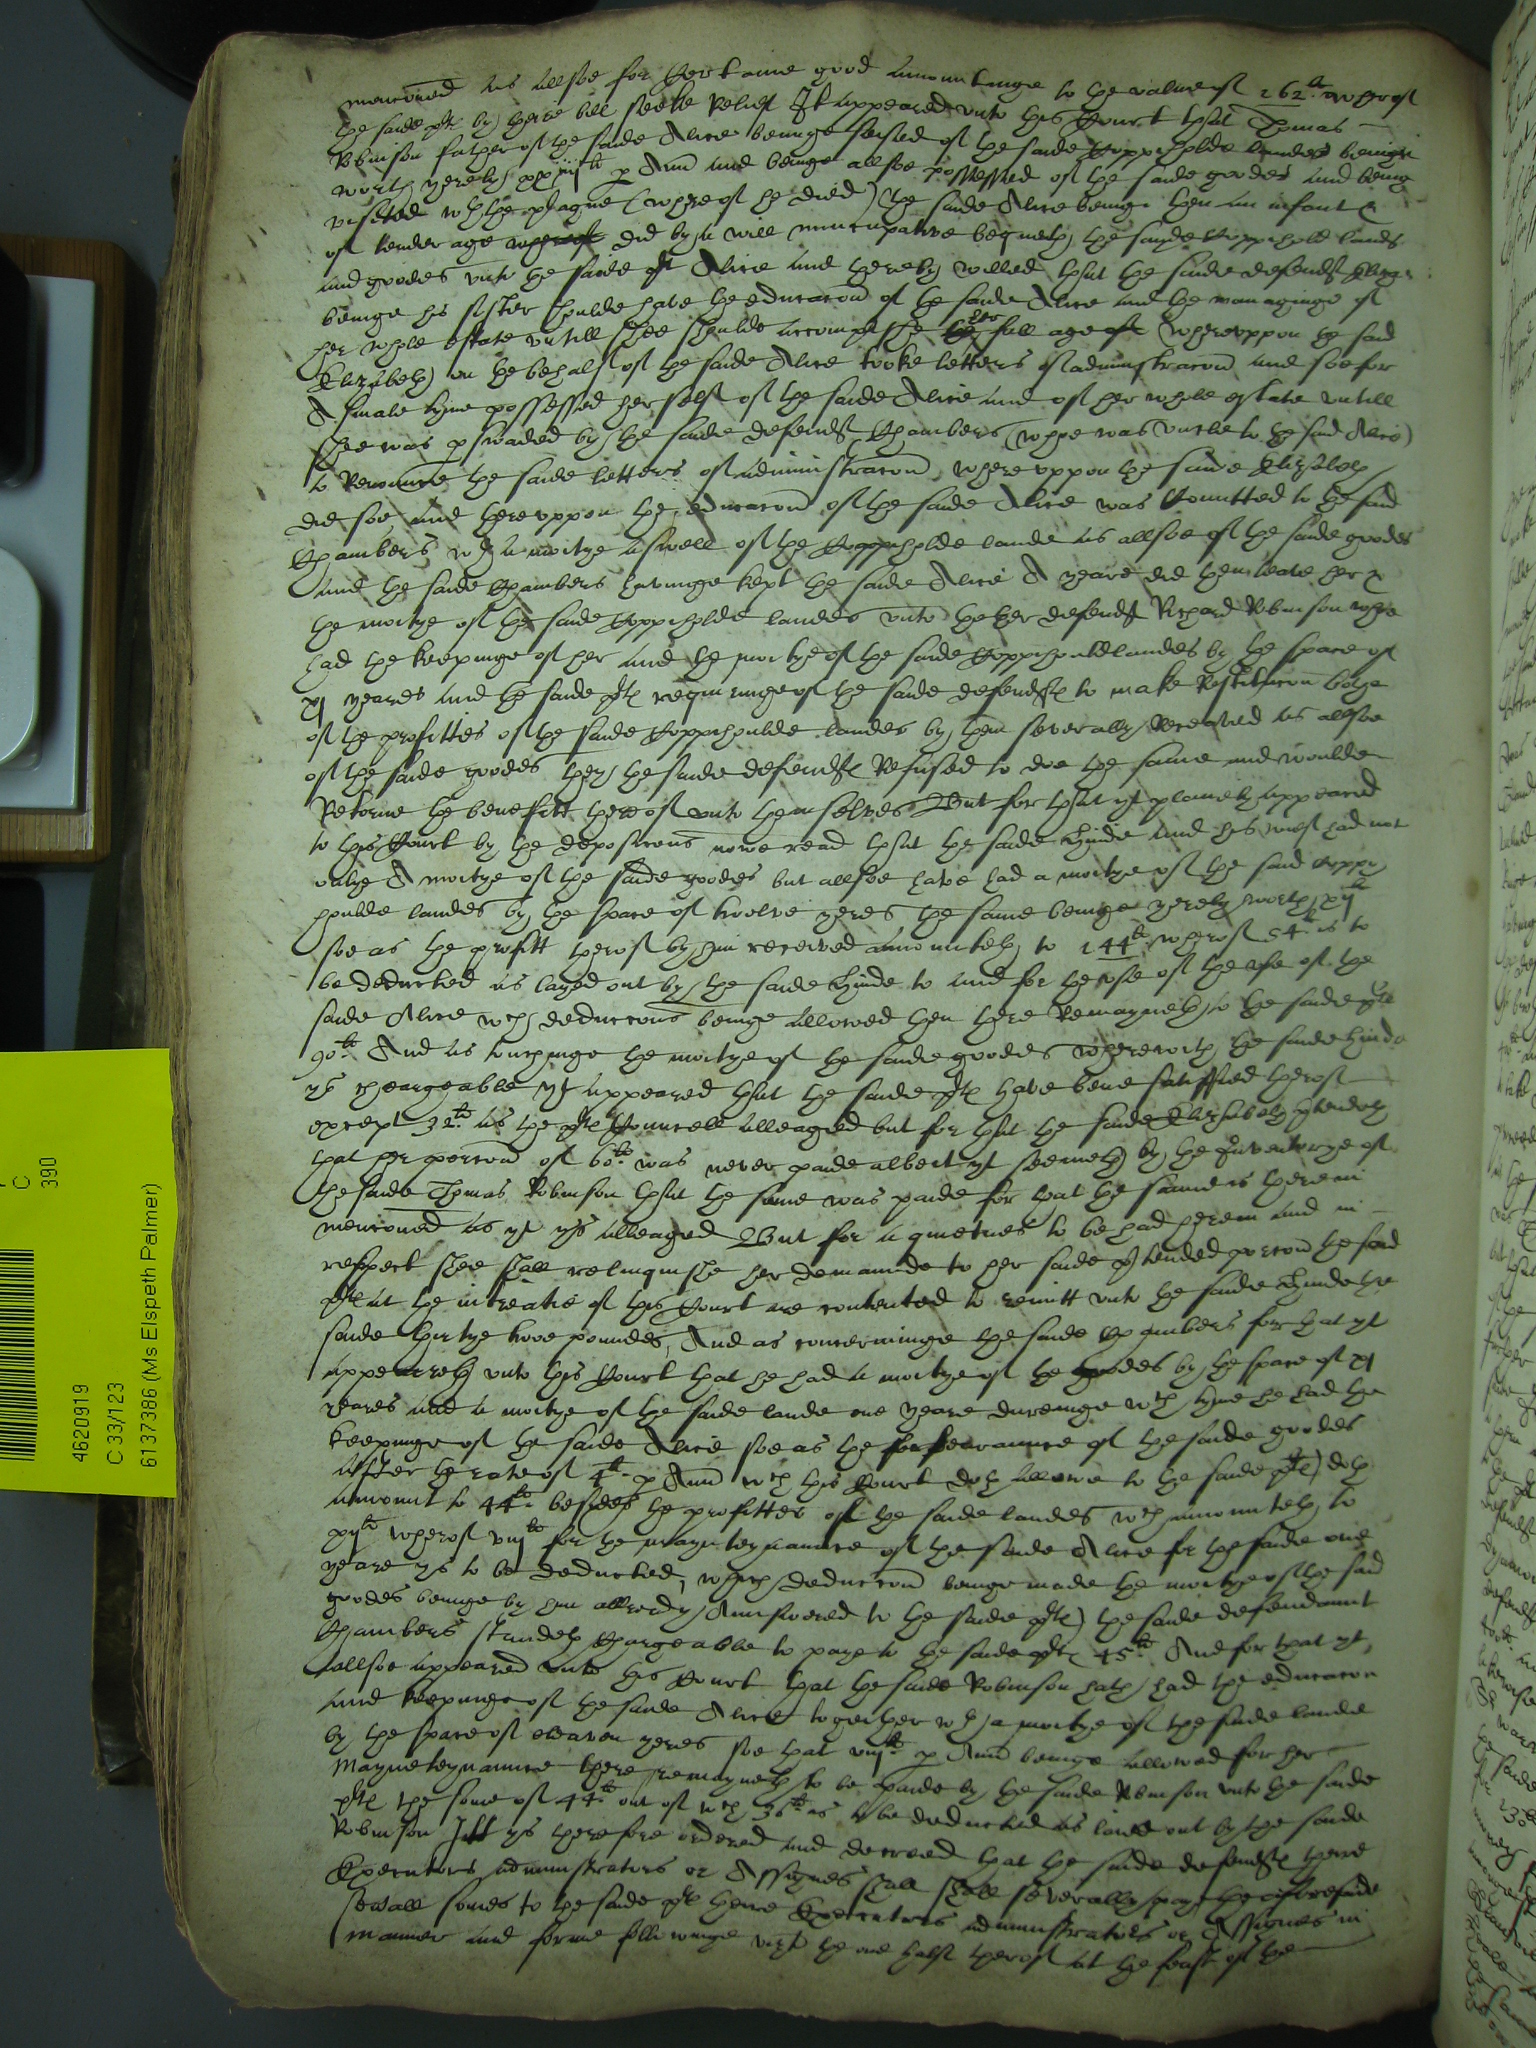 mencioned as allsoe for certaine good amountinge to the value of 262li wherof
the saide plts by theire bill seeke Relief It appeared unto this Court that Thomas
Robinson father of the saide Alice beinge seised of the saide Coppieholde landes beinge
worth yerely xxiiijli p Ann and beinge allsoe possessed of the saide goodes and being
visited wth the plague (whereof he died) the saide Alice beinge then an infant &
of tender age did by a will nuncupative bequeth the sayde Coppihold lands
and goodes unto the saide plt Alice and thereby willed that the saide defendt Eliz:
beinge his sister shoulde have the educacon of the saide Alice and the managinge of
her whole estate untill shee shoulde accomplishe her full age of whereuppon the said
Elizabeth on the behalf of the saide Alice tooke letters of administracon and soe for
A smale tyme possessed her self of the saide Alice and of her whole estate untill
shee was pswaded by the saide defendt Chambers (whoe was uncle to the said Alice)
to Renounce the saide letters of administracon, whereuppon the saide Elizabeth
did soe and thereuppon the educacon of the saide Alice was Comitted to the said
Chambers wth a moitye aswell of the Coppieholde lande as allsoe of the saide goodes
and the saide Chambers havinge kept the saide Alice A yeare did then leave her &
the moitye of the saide Coppiholde landes unto thother defendt Richard Robinson whoe
had the keepinge of her and the moitye of the saide Coppihould landes by the space of
xj yeares and the saide plts requiringe of the saide defendts to make Restitucon bothe
of the profittes of the saide Coppihoulde landes by them severally Received as allsoe
of the saide goodes they the saide defendts Refused to doe the same and woulde
Retorne the benefitt thereof unto themselves But for that yt plainely appeared
to this Court by the deposicons nowe read that the saide Hinde and his wief had not
onlye A moitye of the saide goodes but allsoe have had a moitye of the said Coppy
houlde landes by the space of twelve yeres the same beinge yerely worth xijli
soe as the profitt therof by him received amounteth to 144li wherof 54li is to
be deducted as layed out by the saide Hinde to and for the use of the
saide Alice wch deduccons beinge allowed then there Remayneth to the saide plts
90li And as touchinge the moitye of the saide goodes wherewith the saide Hinde
ys chargeable yt appeared that the saide plts have bene satisfied therof
except 32li as the plts Councell alleaged but for that the saide Elizabeth ptendeth
that her porcon of 60li was never paide albeit yt seemeth by the Inventorye of
the saide Thomas Robinson that the same was paide for that the same is therein
mencioned as yt ys alleaged But for a quietnes to be had herein and in
respect shee shall relinquishe her demaunde to her saide ptended porcon the said
plts at the intreatie of this Court are contented to remitt unto the saide Hinde the
saide thirtye twoe poundes, And as concerninge the saide Chambers for that yt
appeareth unto this Court that he had a moitye of the goodes by the space of xj
yeares and a moitye of the saide lande one yeare duringe wch tyme he had the
keepinge of the saide Alice soe as the forbearaunce of the saide goodes
after the rate of 4li p Ann wch this Court doth allowe to the saide plts doth
amount to 44li besides the profittes of the saide landes wch amounteth to
xijli wherof viijli for the maynteynaunce of the saide Alice for the saide one
yeare ys to be deducted, which deduccon beinge made the moitye of the said
goodes beinge by him allredy Aunswered to the saide plts the saide defendaunt
Chambers standeth Chargeable to paye to the saide plts 45li And for that yt
allsoe appeared unto this Court that the saide Robinson hath had the educacon
and keepinge of the saide Alice togeither wth a moitye of the saide lande
by the space of eleaven yeres soe that viijli p Ann beinge allowed for her
Maynteynaunce there remayneth to be paide by the saide Robinson unto the saide
plts the some of 44li out of wch 36li is to be deducted as laied out by the saide
Robinson Itt ys therefore ordered and decreed that the saide defendts theire
Executors administrators or Assignes shall shall severally pay the aforesaide
sevall somes to the saide plts theire Executors administrators or Assignes in
manner and forme followinge vizt the one halfe therof at the feast of the
C
390
4620919
C 33/123
6137386 (Ms Elspeth Palmer)